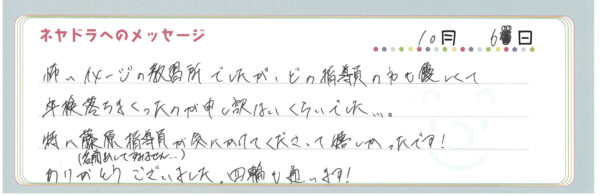 ネヤドラへのメッセージ
10月 6日
怖いイメージの教習所でしたが、どの指導員の方も優しくて
卒検落ちまくったのが申し訳ないくらいでした…。
特に藤原指導員が気にかけてくださって嬉しかったです!
(名前出してすみません…)
ありがとうございました。四輪も通います!